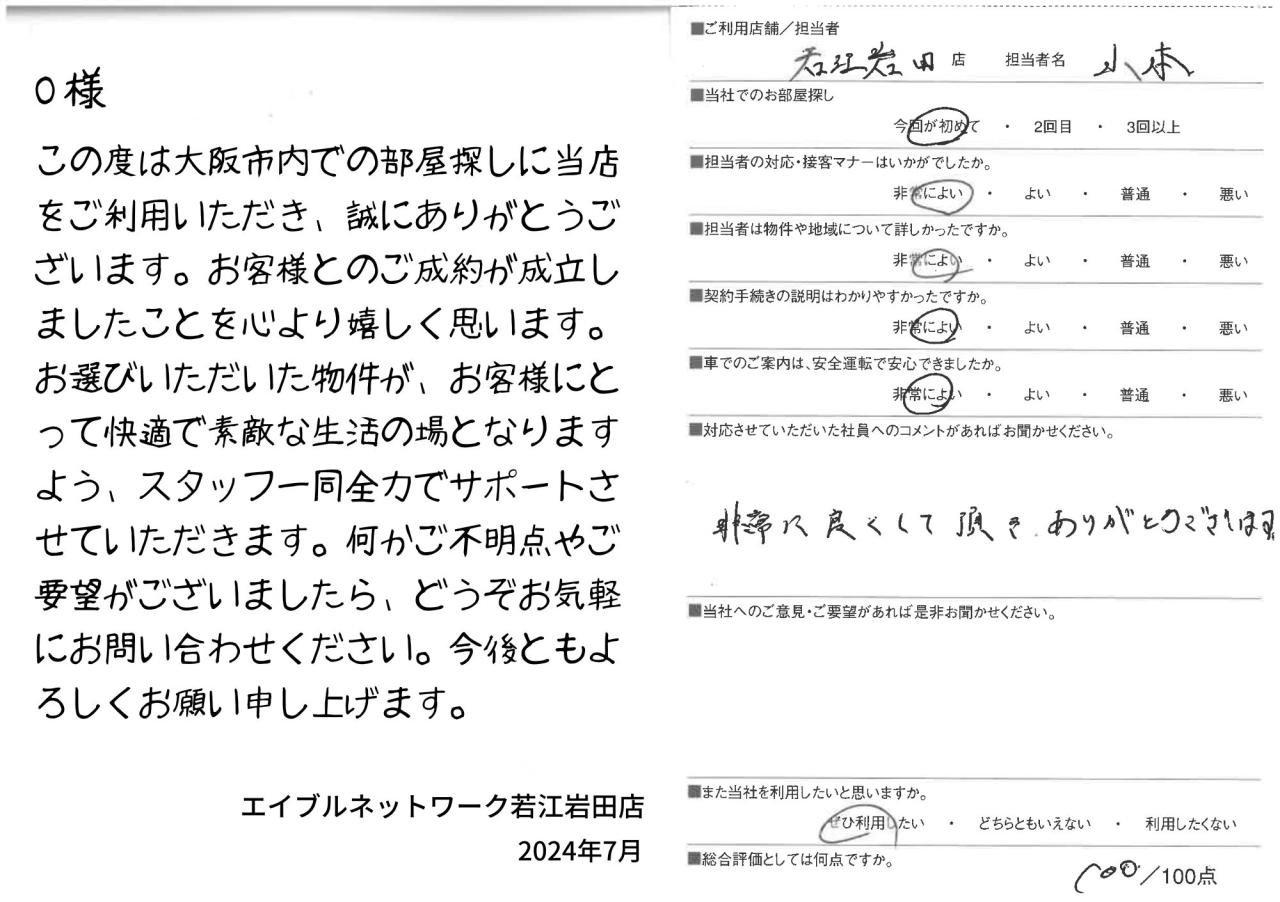 O様
この度は大阪市内での部屋探しに当店
をご利用いただき、誠にありがとうご
ざいます。お客様とのご成約が成立し
ましたことを心より嬉しく思います。
お選びいただいた物件が、お客様にと
って快適で素敵な生活の場となります
よう、スタッフ一同全力でサポートさ
せていただきます。何かご不明点やご
要望がございましたら、どうぞお気軽
にお問い合わせください。今後ともよ
ろしくお願い申し上げます。
エイブルネットワーク若江岩田店
2024年7月
■ご利用店舗／担当者
若江岩田 店 担当者名 小本
■当社でのお部屋探し
今回が初めて ・ 2回目 ・ 3回以上
■担当者の対応・接客マナーはいかがでしたか。
非常によい ・ よい ・ 普通 ・ 悪い
■担当者は物件や地域について詳しかったですか。
非常によい ・ よい ・ 普通 ・ 悪い
■契約手続きの説明はわかりやすかったですか。
非常によい ・ よい ・ 普通 ・ 悪い
■車でのご案内は、安全運転で安心できましたか。
非常によい ・ よい ・ 普通 ・ 悪い
■対応させていただいた社員へのコメントがあればお聞かせください。
非常に良くして頂き、ありがとうございます。
■当社へのご意見・ご要望があれば是非お聞かせください。
■また当社を利用したいと思いますか。
ぜひ利用したい ・ どちらともいえない ・ 利用したくない
■総合評価としては何点ですか。
100／100点